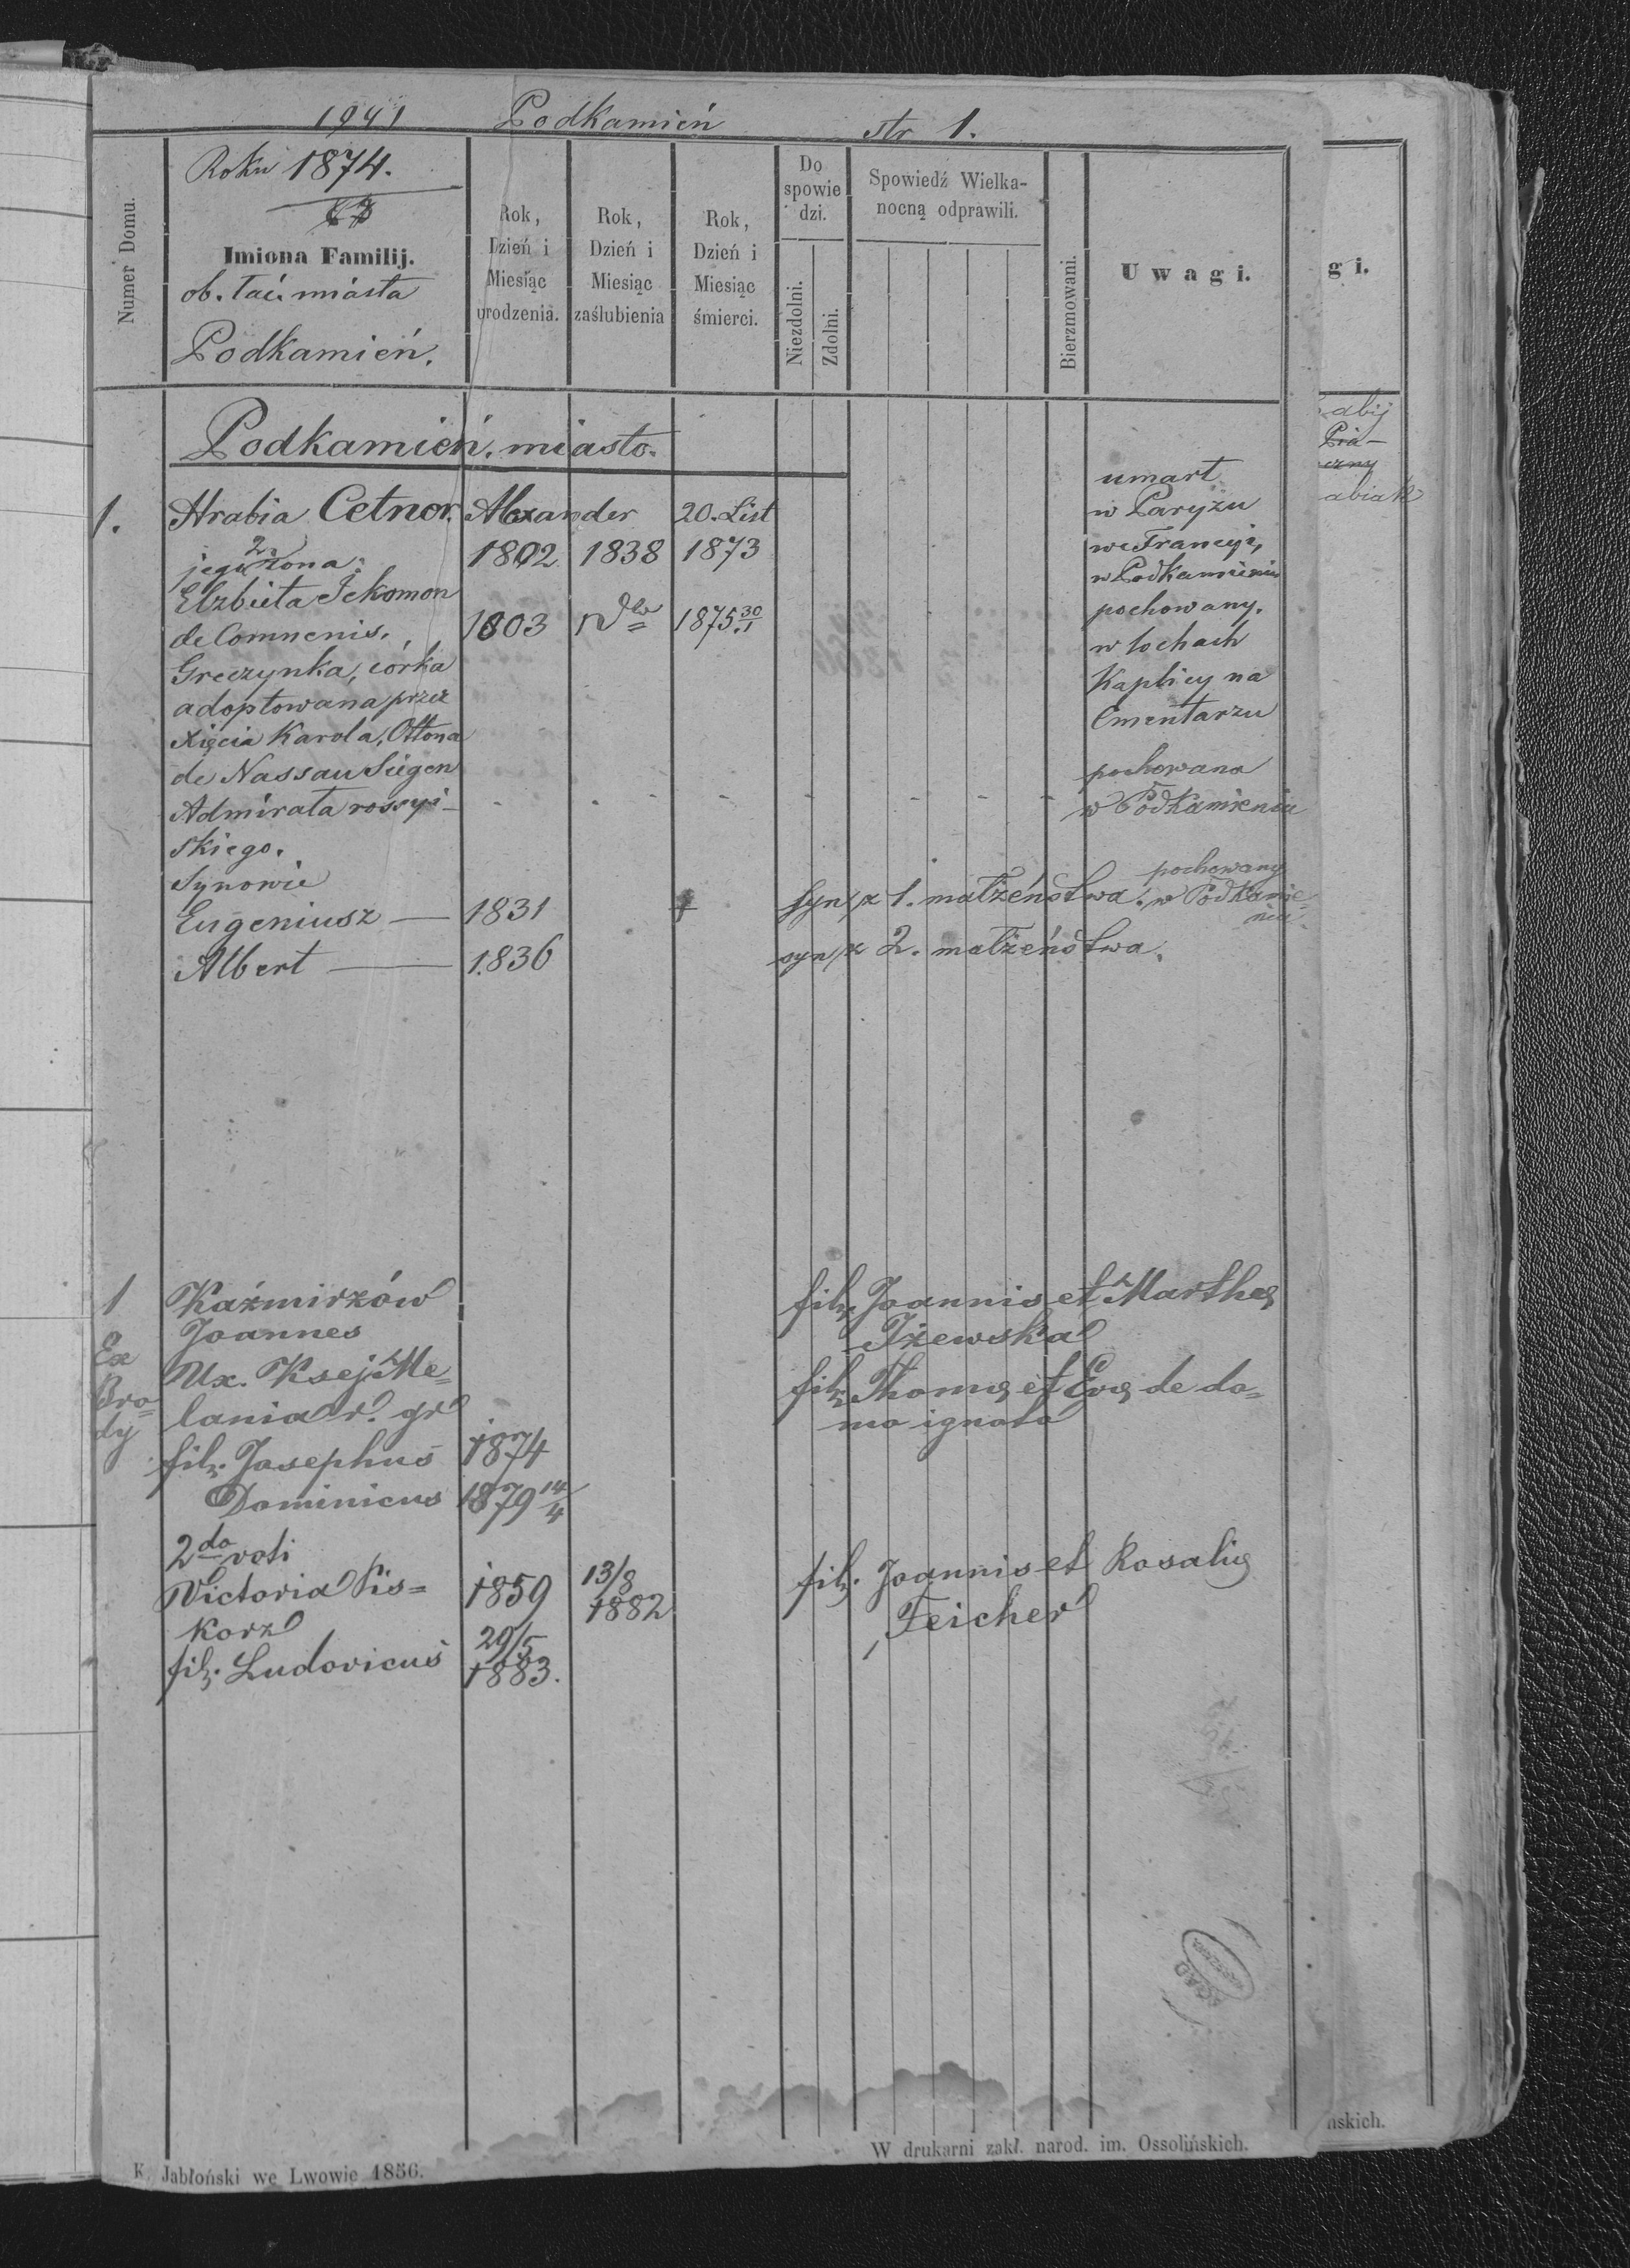 1941 Podkamień str 1.
Numer Domu.
Roku 1874.
Imiona Familij.
ob. łać. miasta
Podkamień.
Rok, Dzień i Miesiąc urodzenia.
Rok, Dzień i Miesiąc zaślubienia
Rok, Dzień i Miesiąc śmierci.
Do spowiedzi.
Niezdolni.
Zdolni.
Spowiedź Wielka-
nocną odprawili.
Bierzmowani.
Uwagi.
gi.
Podkamień. miasto.
1. Hrabia Cetner. Alexander 20. List
1802 1838 1873
umarł
w Paryżu
we Francyi,
w Podkamieniu
pochowany.
w lochach
Kaplicy na
Cmentarzu
jego 2. żona:
Elzbieta
de Comnenis. 1803 1875 30/1
Greczynka, córka
adoptowana przez
Xięcia Karola, Ottona
de Nassau Siegen
Admirała rossyi-
skiego.
pochowana
w Podkamieniu
Synowie
Eugeniusz — 1831 † syn z 1. małżeństwa. pochowany w Podkamie-
niu
Albert — 1836 syn z 2. małżeństwa.
abij
abiak
1 Kaźmirzów fil. Joannis et Marthae
Joannes Iżewska
Ex Brody
Ux. Ksej Me= fil. Thomae et Evae de do=
lania r. gr mo ignota
fil. Josephus 1874
Dominicus 1879 14/4
2do voti
Victoria Pis= 1859 13/8 1882 fil. Joannis et Rosaliae
korz Teicher
fil. Ludovicus 29/5 1883.
K. Jabłoński we Lwowie 1856.
W drukarni zakł. narod. im. Ossolińskich.
ńskich.